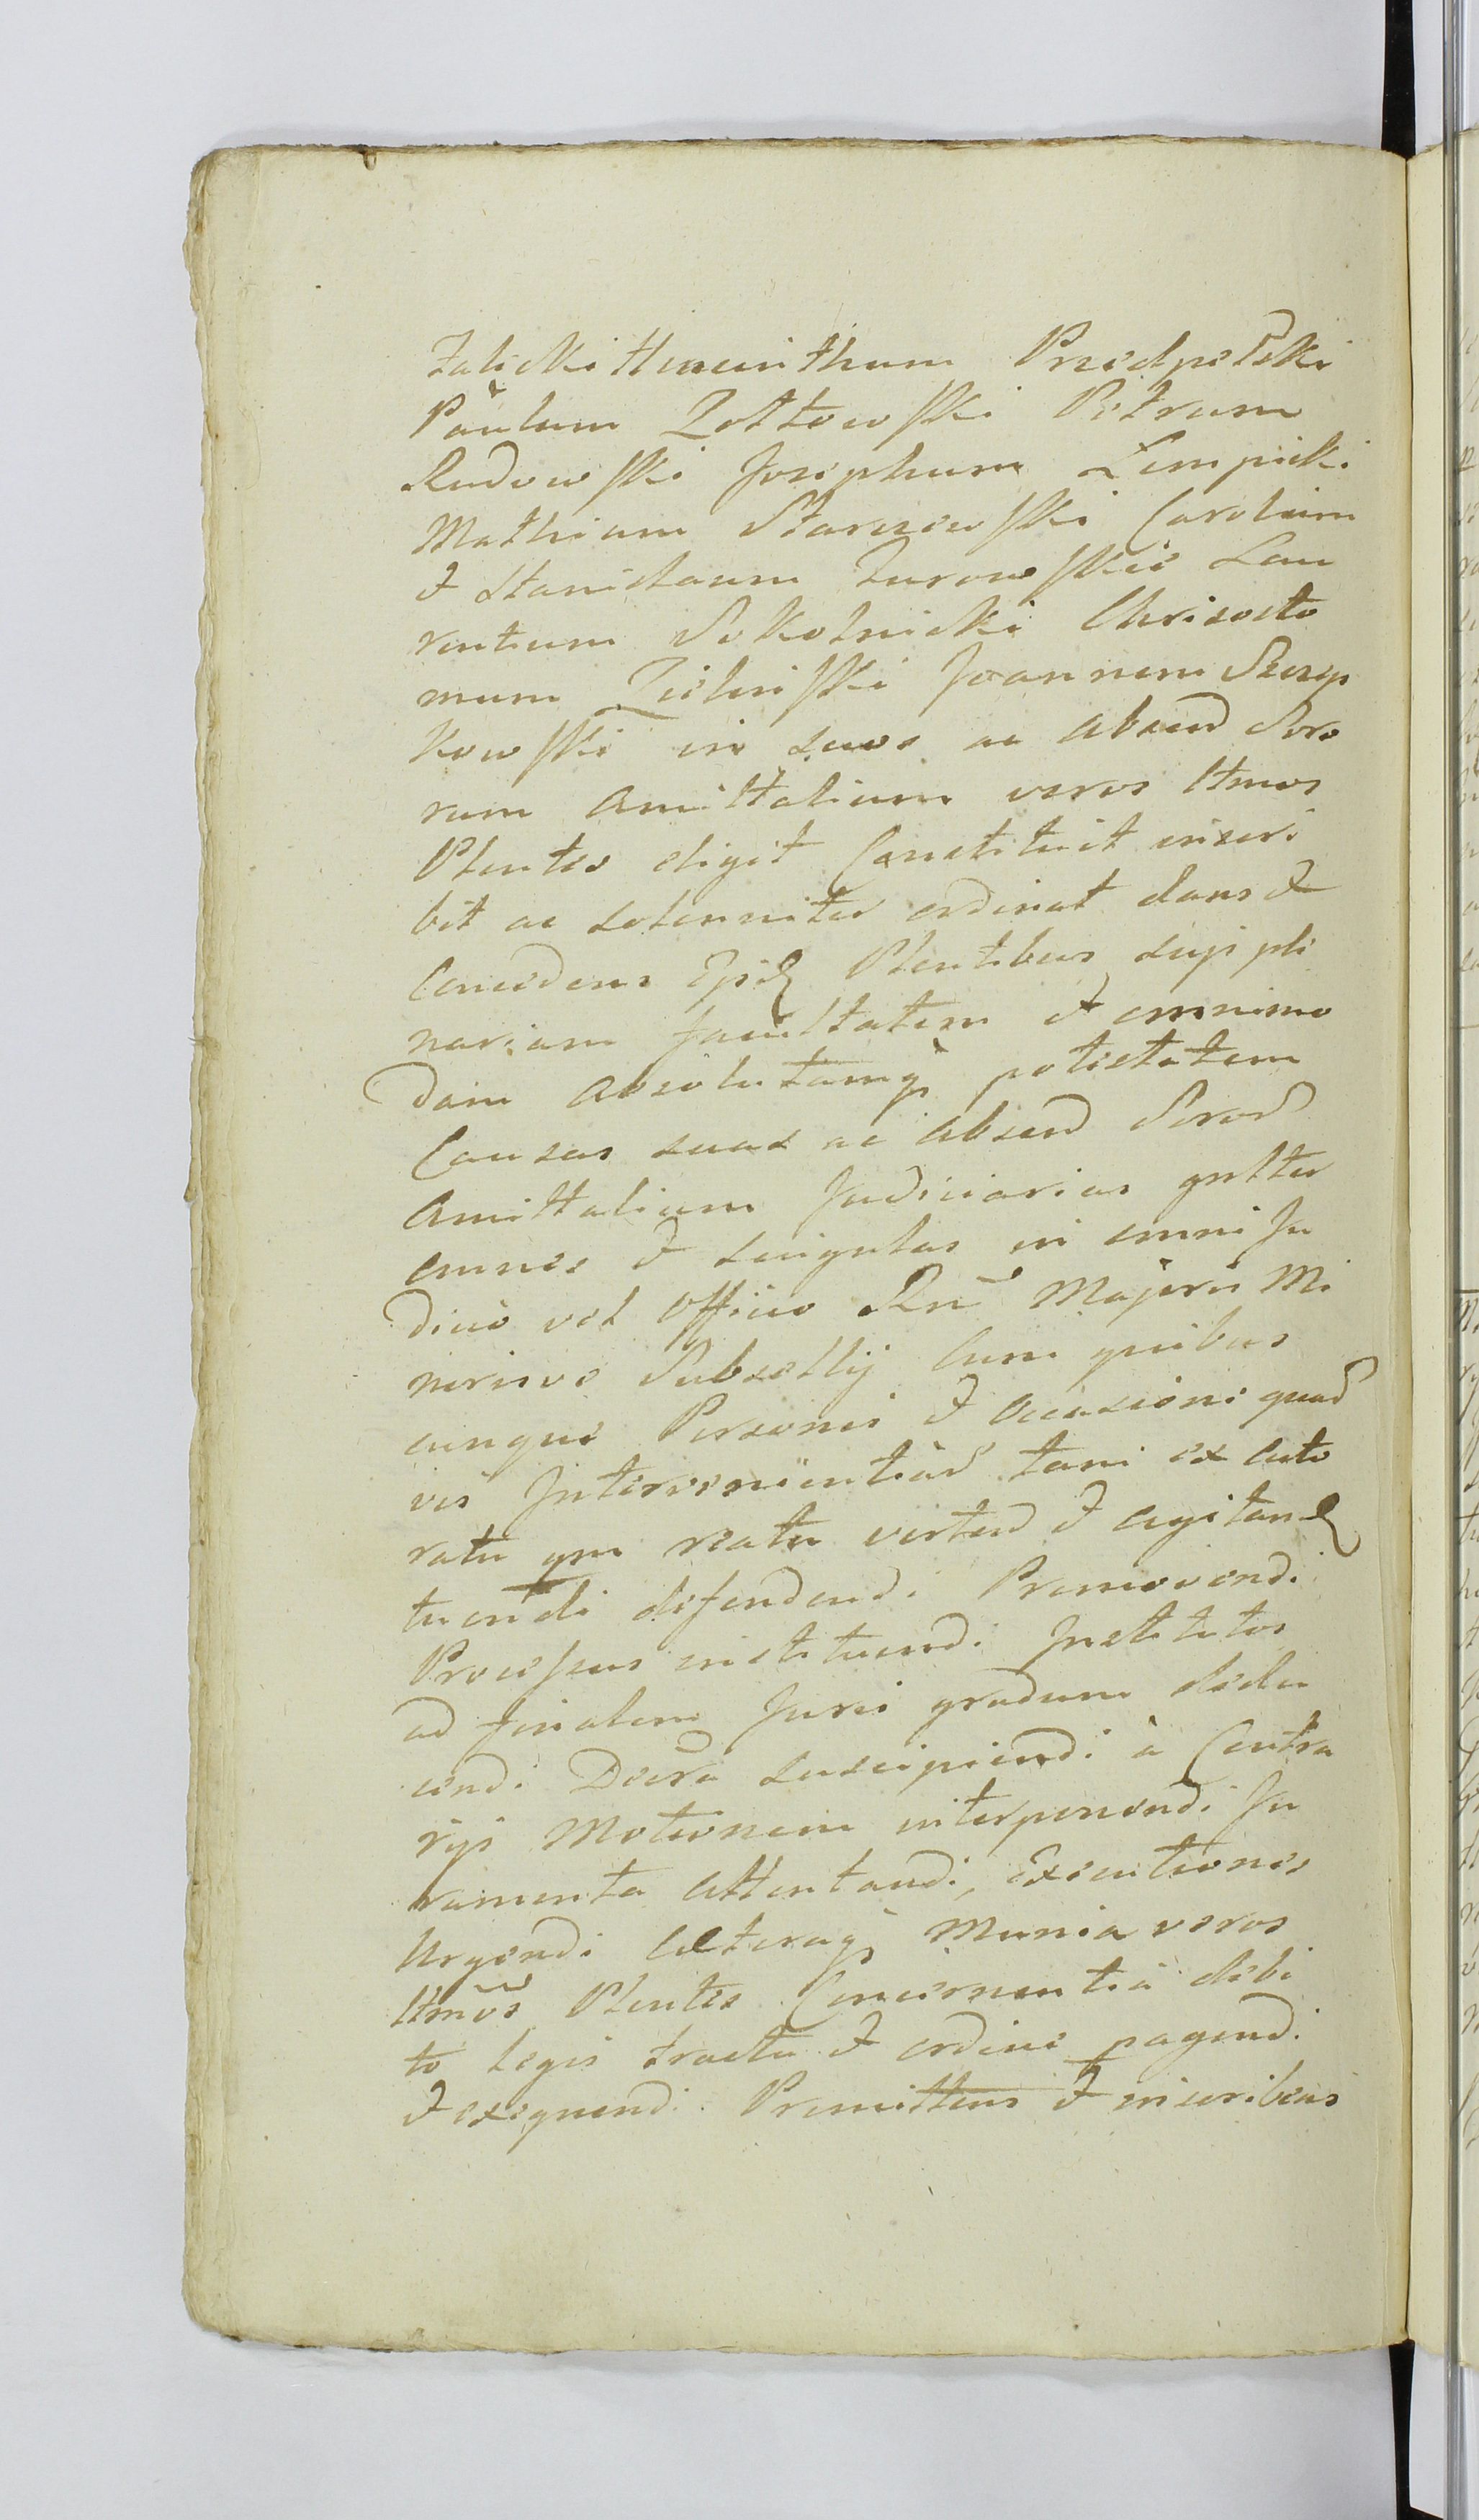 Zalicki Hyacinthum Przedpełski
Paulum Zołtowski Petrum
Rudowski Josephum Łempicki
Mathiam Starczewski Carolum
et Stanislaum Zurowskie Lau
rentium Sokolnicki Chrisosto
mum Zielinski Joannem Skarp
kowski in suos ac absend Soro
rum Amittalium veros Ltmos
Plentes eligit Constituit inscri
bit ac solenniter ordinat dans et
Concedens Ipsis Plentibus suis ple
nariam facultatem et omnimo
dam absolutamq potestatem
Causas suas ac absend Soror
Amittalium Judiciarias gnlter
omnes et singulas in omni Ju
dicio vel Officio Rni Majoris Mi
norisve Subsellij Cum quibus
cunque Personis et occasione quad
vis Intervenientiad tam ex acto
ratu qm reatu vertend et agitand
tuendi defendendi Promovendi
Processus instituendi Institutos
ad finalem Juris gradum dedu
cendi Decra suscipiendi à Contra
rijs Motionem interponendi Ju
ramenta attentandi, Executiones
Urgendi Cæteraq Munia veros
Ltmos Plentes Concernentia debi
to legis tractu et ordine pagendi
et exequendi. Promittens et inscribens